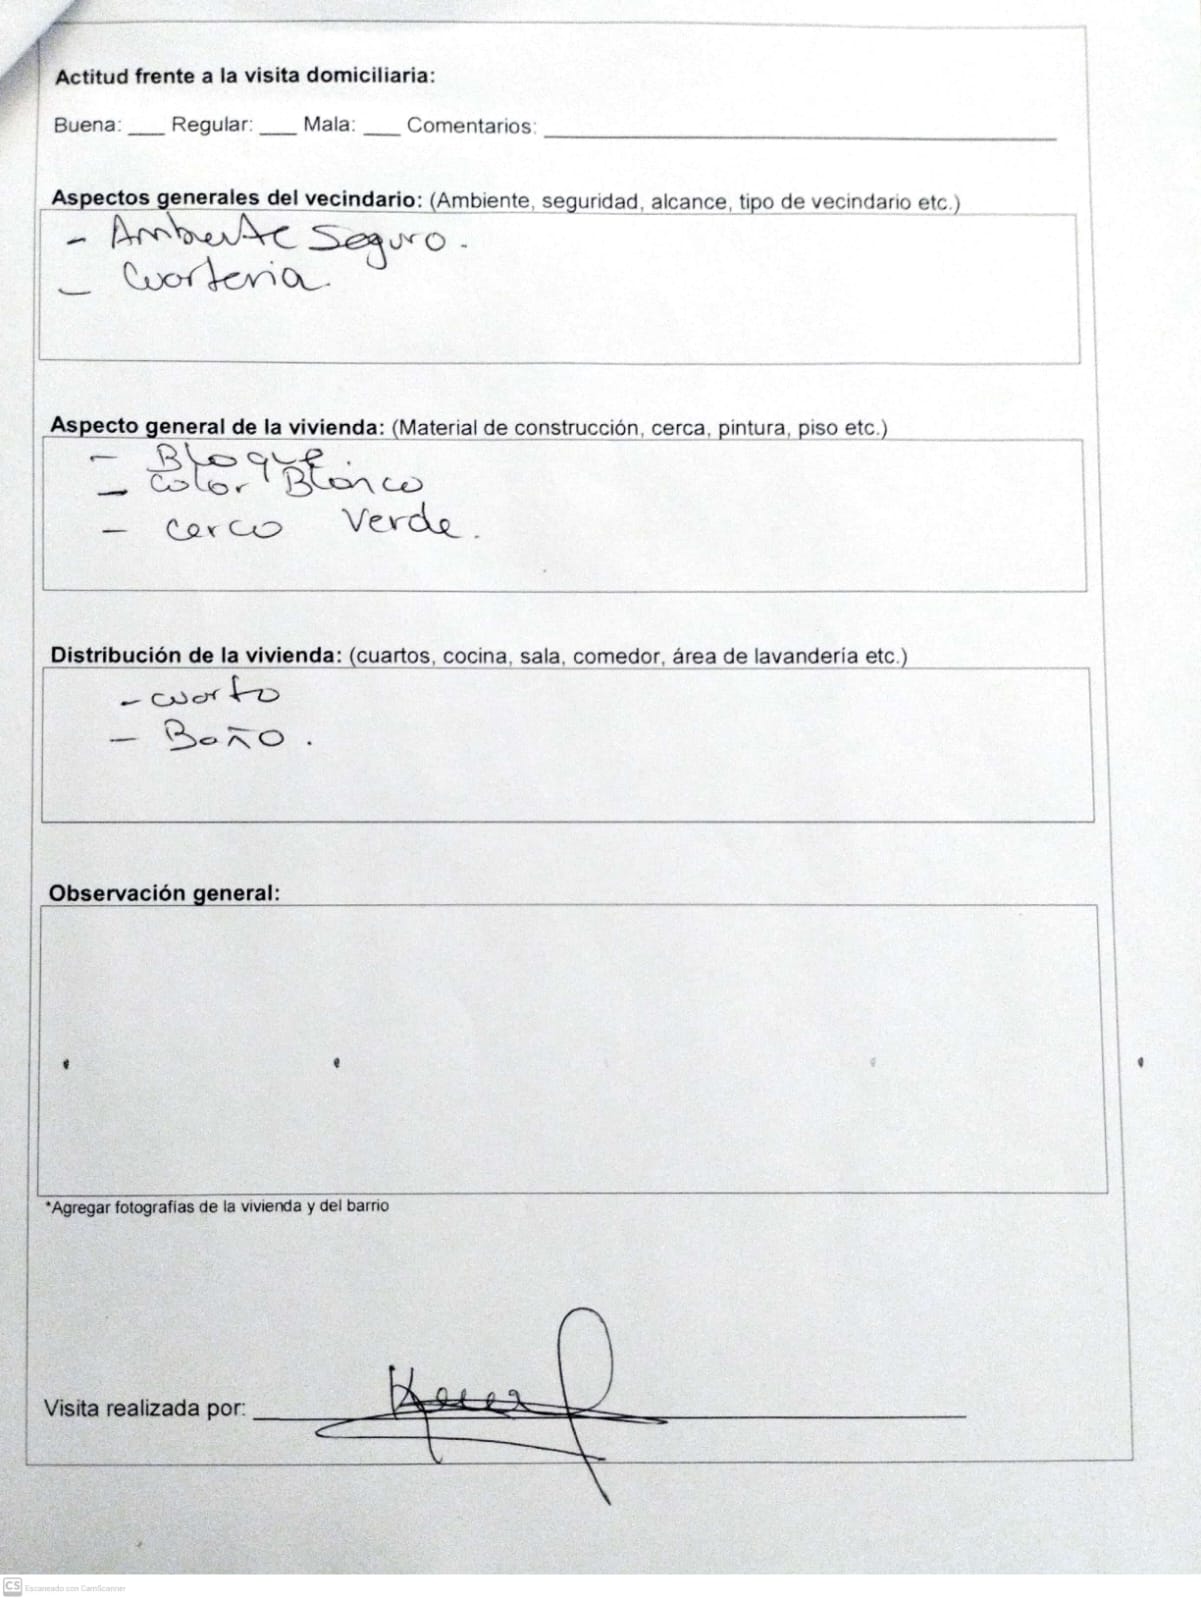 Actitud frente a la visita domiciliaria:
Buena: ___ Regular: ___ Mala: ___ Comentarios: ___
Aspectos generales del vecindario: (Ambiente, seguridad, alcance, tipo de vecindario etc.)
- Ambiente Seguro.
- Cuarteria.
Aspecto general de la vivienda: (Material de construcción, cerca, pintura, piso etc.)
- Bloque
- Color Blanco
- cerco Verde.
Distribución de la vivienda: (cuartos, cocina, sala, comedor, área de lavandería etc.)
- cuarto
- Baño.
Observación general:
*Agregar fotografías de la vivienda y del barrio
Visita realizada por:
CS Escaneado con CamScanner